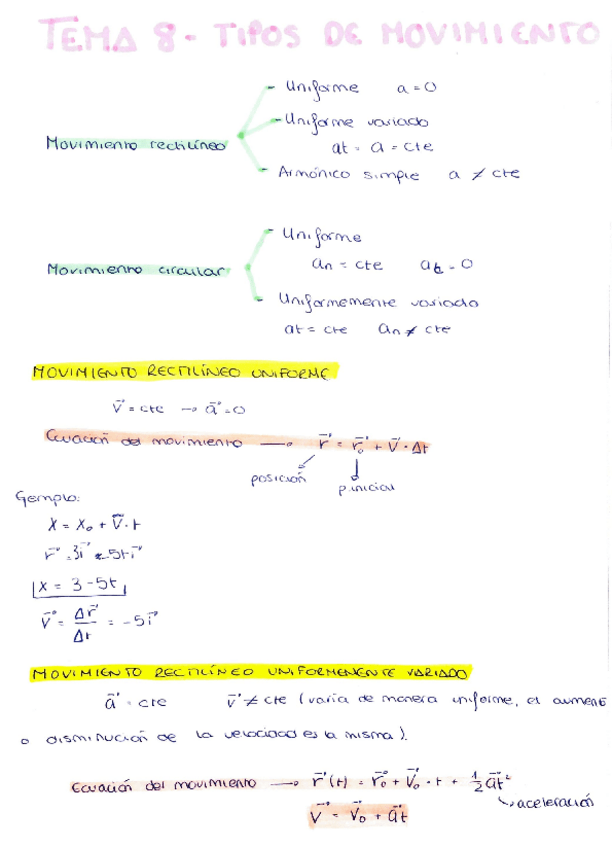 TEMA 8 - TIPOS DE MOVIMIENTO
- Uniforme a = 0
Movimiento rectilíneo - Uniforme variado
at = a = cte
- Armónico simple a ≠ cte
- Uniforme
an = cte at = 0
Movimiento circular
- Uniformemente variado
at = cte an ≠ cte
MOVIMIENTO RECTILÍNEO UNIFORME
v⃗ = cte → a⃗ = 0
Ecuación del movimiento → r⃗ = r⃗₀ + v⃗ · Δt
posición p. inicial
Ejemplo:
x = x₀ + v⃗ · t
r⃗ = 3i⃗ - 5t i⃗
x = 3 - 5t
v⃗ = Δr⃗ / Δt = -5i⃗
MOVIMIENTO RECTILÍNEO UNIFORMEMENTE VARIADO
a⃗ = cte v⃗ ≠ cte (varía de manera uniforme, el aumento
o disminución de la velocidad es la misma).
Ecuación del movimiento → r⃗(t) = r⃗₀ + v⃗₀ · t + ½ a⃗t²
aceleración
v⃗ = v⃗₀ + a⃗t